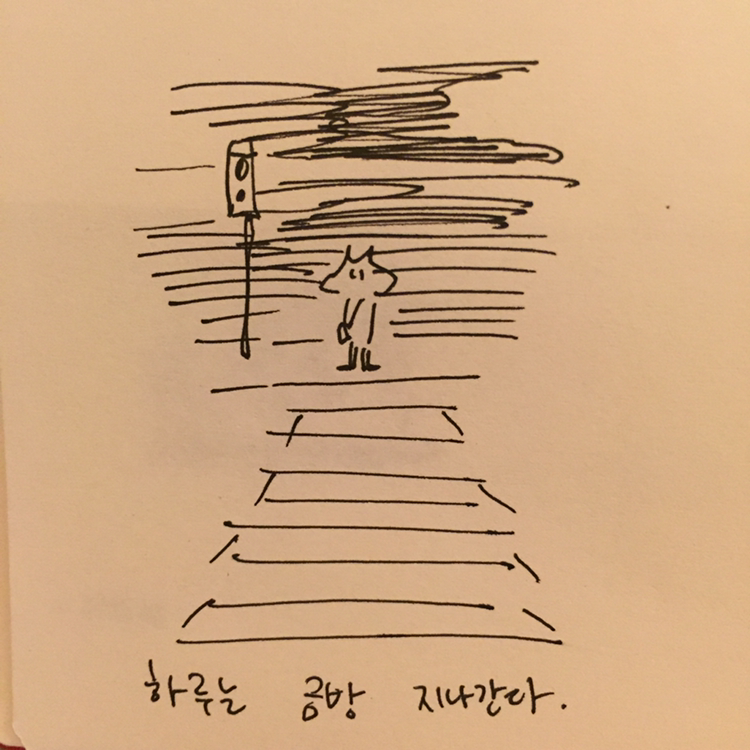 하루는 금방 지나간다.